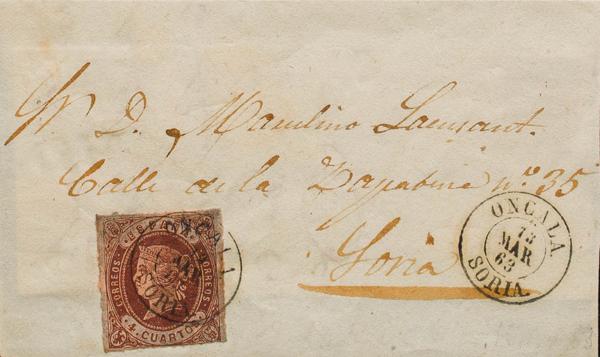 Sr. D. Marcelino
Calle de la Zapateria nº 35
Soria
ONCALA
13
MAR
63
SORIA
ONCALA
SORIA
ESPAÑA
CORREOS
CORREOS
4 CUARTOS